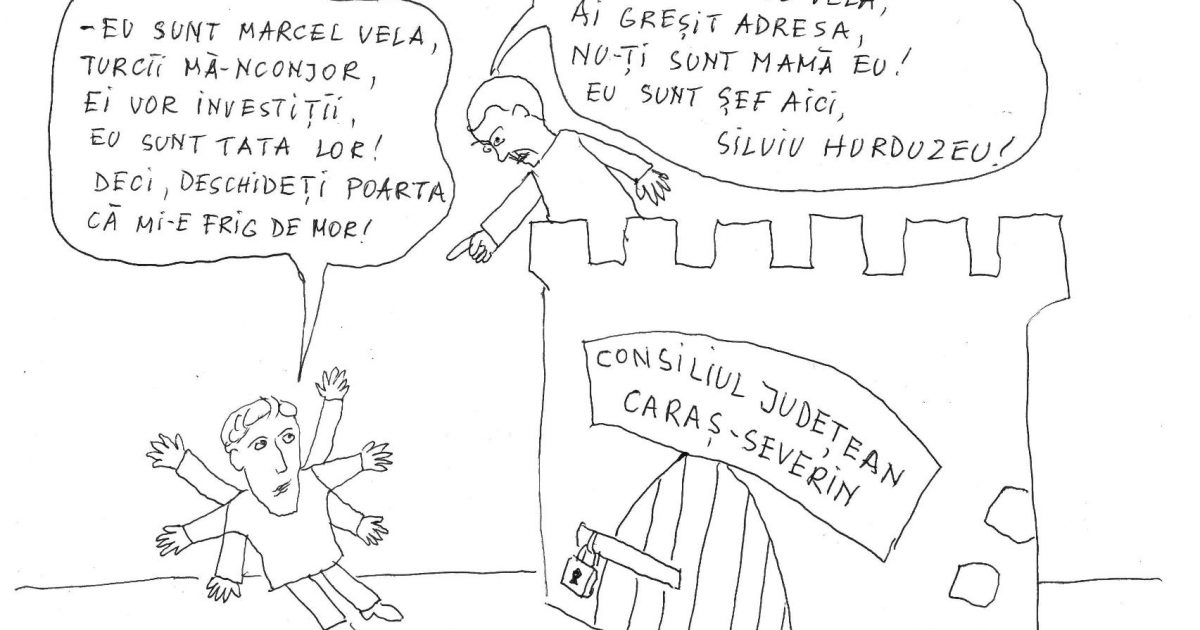 -EU SUNT MARCEL VELA,
TURCII MĂ-NCONJOR,
EI VOR INVESTIȚII,
EU SUNT TATA LOR!
DECI, DESCHIDEȚI POARTA
CĂ MI-E FRIG DE MOR!
VELA,
AI GREȘIT ADRESA,
NU-ȚI SUNT MAMĂ EU!
EU SUNT ȘEF AICI,
SILVIU HURDUZEU!
CONSILIUL JUDEȚEAN
CARAȘ-SEVERIN